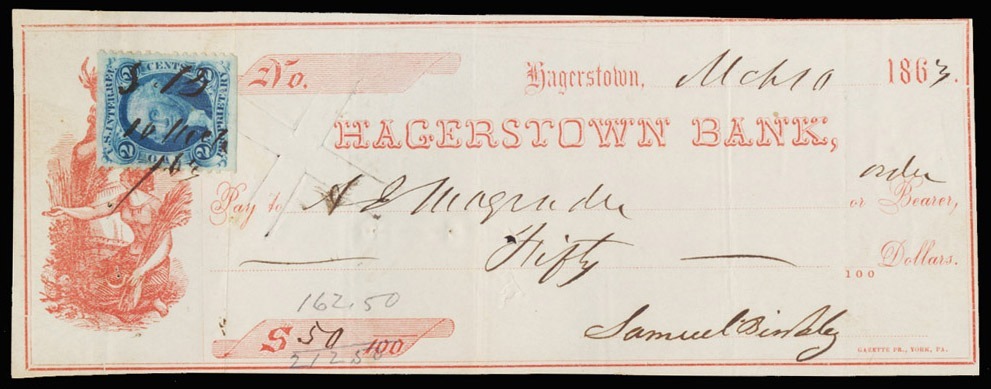 No. Hagerstown, Mch 10 1863.
HAGERSTOWN BANK,
order
Pay to A E Magruder or Bearer,
Fifty Dollars.
100
162.50
$ 50 100
212 50
Samuel Binkley
GAZETTE PR., YORK, PA.
U.S. INTER. REV.
2 CENTS 2
S. B
10 Mch
/63
2 2